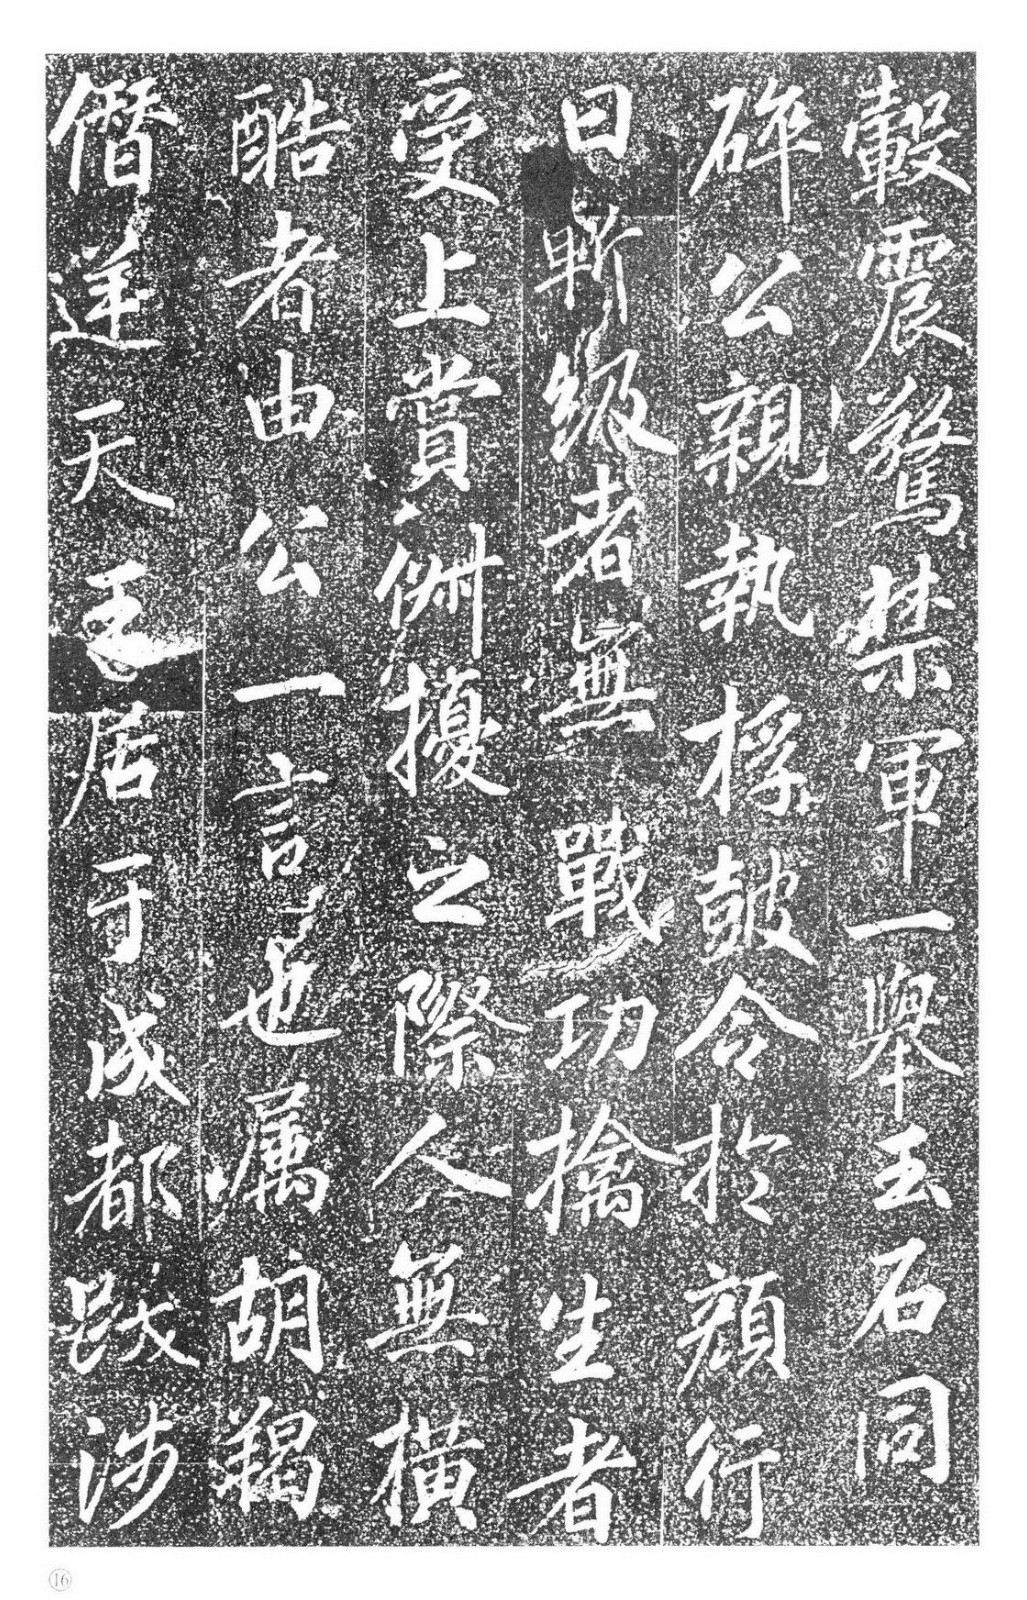 轂震驚禁軍一舉玉石同
碎公親執桴鼓令於顏行
曰斬級者無戰功擒生者
受上賞俶擾之際人無橫
酷者由公一言也属胡羯
僭逆天王居于成都跋涉
16